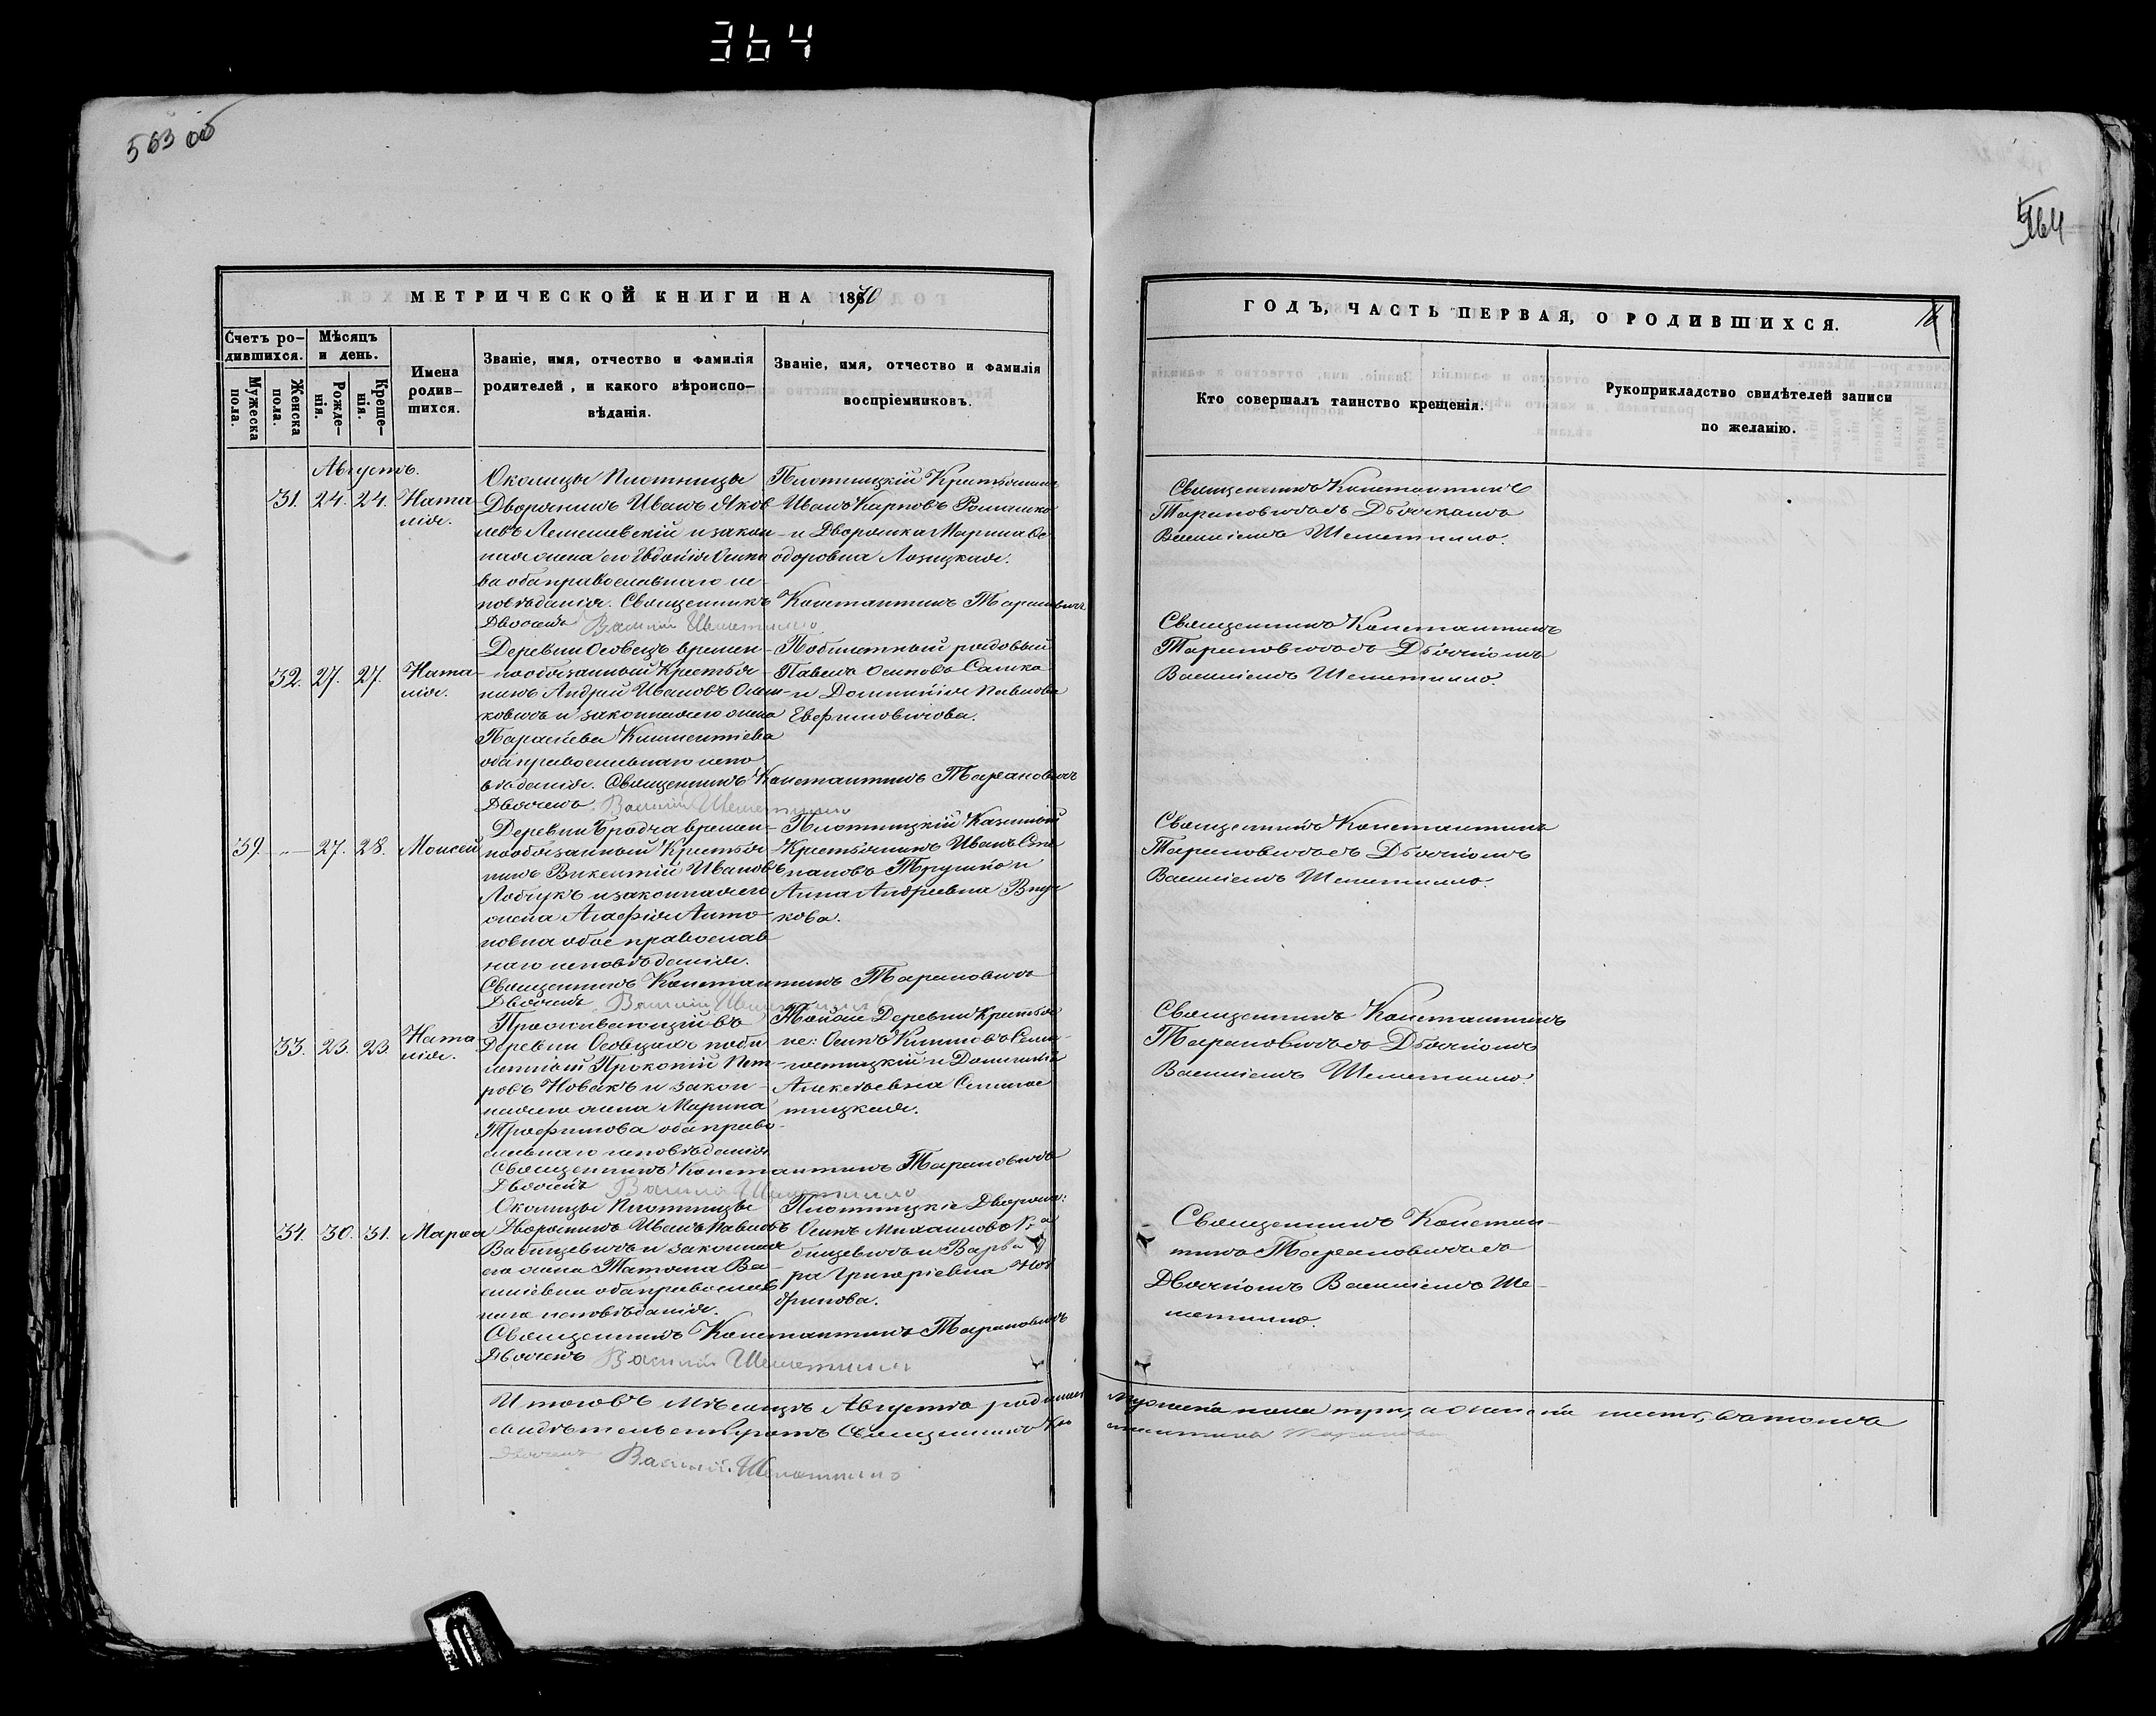 364
563 об
564
МЕТРИЧЕСКОЙ КНИГИ НА 1870
Счетъ ро-
дившихся.
Мужеска пола.
Женска пола.
Мѣсяцъ
и день.
Рожде-
нія.
Креще-
нія.
Имена
родив-
шихся.
Званіе, имя, отчество и фамилія
родителей, и какого вѣроиспо-
вѣданія.
Званіе, имя, отчество и фамилія
воспріемниковъ.
ГОДЪ, ЧАСТЬ ПЕРВАЯ, О РОДИВШИХСЯ.
16
Кто совершалъ таинство крещенія.
Рукоприкладство свидѣтелей записи
по желанію.
Августъ.
31. 24. 24. Ната-
лія.
Околицы Плотницы
Дворянинъ Иванъ Яков-
левъ Лемешевскій и закон-
ная жена его Евдокія Осипо-
ва оба православнаго ис-
повѣданія. Священникъ Константинъ Тарановичъ
Дьячекъ Василій Шеметилло
Плотницкій Крестьянинъ
Иванъ Карповъ Ромашко
и Дворянка Марина Ѳе-
одоровна Лозицкая.
Священникъ Константинъ
Тарановичъ съ Дьячкомъ
Василіемъ Шеметилло.
32. 27. 27. Ната-
лія.
Деревни Осовецъ времен-
нообязанный Крестья-
нинъ Андрей Ивановъ
и законная его жена
Параскева Климентіева
оба православнаго испо-
вѣданія. Священникъ Константинъ Тарановичъ
Дьячекъ Василій Шеметилло
Побилетный рядовый
Павелъ Осиповъ Сашко
и Домникія Павлова
Ефимовичова.
Священникъ Константинъ
Тарановичъ съ Дьячкомъ
Василіемъ Шеметилло.
39. " 27. 28. Моисей
Деревни Бродча времен-
нообязанный Крестья-
нинъ Викентій Ивановъ
Лобчукъ и законная его
жена Агафія Анто-
новна обое православ-
наго исповѣданія.
Священникъ Константинъ Тарановичъ
Дьячекъ Василій Шеметилло
Плотницкій Казенный
Крестьянинъ Иванъ Сте-
пановъ Трушко и
Анна Андреевна
кова.
Священникъ Константинъ
Тарановичъ съ Дьячкомъ
Василіемъ Шеметилло.
33. 23. 23. Ната-
лія.
Проживающій въ
Деревни Осовцахъ поби-
летный Прокопій Пет-
ровъ Новакъ и закон-
ная его жена Марина
Трофимова оба право-
славнаго исповѣданія
Священникъ Константинъ Тарановичъ
Дьячекъ Василій Шеметилло
Той же Деревни Крестья-
не: Осипъ Климовъ
и Домникія
Алексѣевна
Священникъ Константинъ
Тарановичъ съ Дьячкомъ
Василіемъ Шеметилло.
34. 30. 31. Марѳа
Околицы Плотницы
Дворянинъ Иванъ Павловъ
Вабищевичъ и законная
его жена Татьяна Ва-
силіевна оба православ-
наго исповѣданія.
Священникъ Константинъ Тарановичъ
Дьячекъ Василій Шеметилло
Плотницкіе Дворяне:
Осипъ Михаиловъ
бищевичъ и Варва-
ра Григоріевна
Священникъ Констан-
тинъ Тарановичъ съ
Дьячкомъ Василіемъ Ше-
метилло.
Итого въ мѣсяцѣ Августѣ родилось мужеска пола три, а женска шесть, въ томъ
свидѣтельствуютъ Священникъ Константинъ Тарановичъ
Дьячекъ Василій Шеметилло